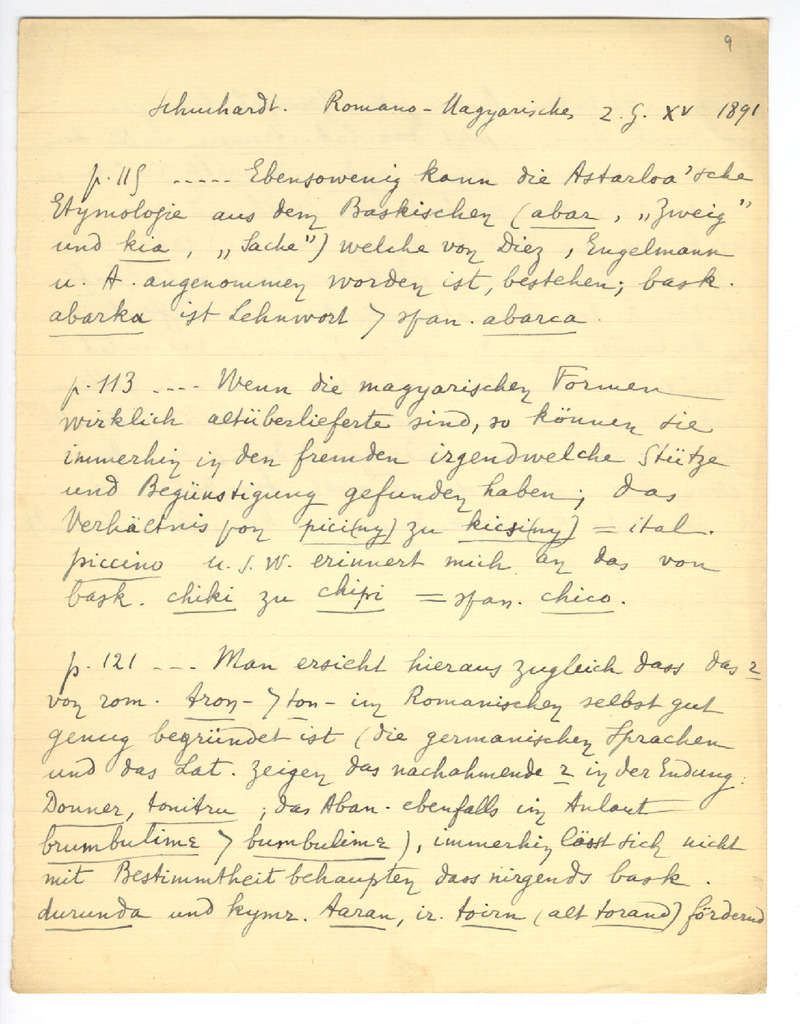 9
Schuchardt. Romano-Magyarisches Z. G. XV 1891
p. 115 ..... Ebensowenig kann die Astarloa'sche
Etymologie aus dem Baskischen (abar, „Zweig"
und kia, „Sache") welche von Diez, Engelmann
u. A. angenommen worden ist, bestehen; bask.
abarka ist Lehnwort > span. abarca.
p. 113 .... Wenn die magyarischen Formen
wirklich altüberlieferte sind, so können sie
immerhin in den fremden irgendwelche Stütze
und Begünstigung gefunden haben; das
Verhältnis von pici(ny) zu kicsi(ny) = ital.
piccino u. s. w. erinnert mich an das von
bask. chiki zu chipi = span. chico.
p. 121 ... Man ersieht hieraus zugleich dass das r
von rom. tron- > ton- im Romanischen selbst gut
genug begründet ist (die germanischen Sprachen
und das Lat. zeigen das nachahmende r in der Endung:
Donner, tonitru; das Alban. ebenfalls im Anlaut
brumbulimë > bumbulimë), immerhin lässt sich nicht
mit Bestimmtheit behaupten dass nirgends bask.
durunda und kymr. taran, ir. toirn (alt torand) fördernd